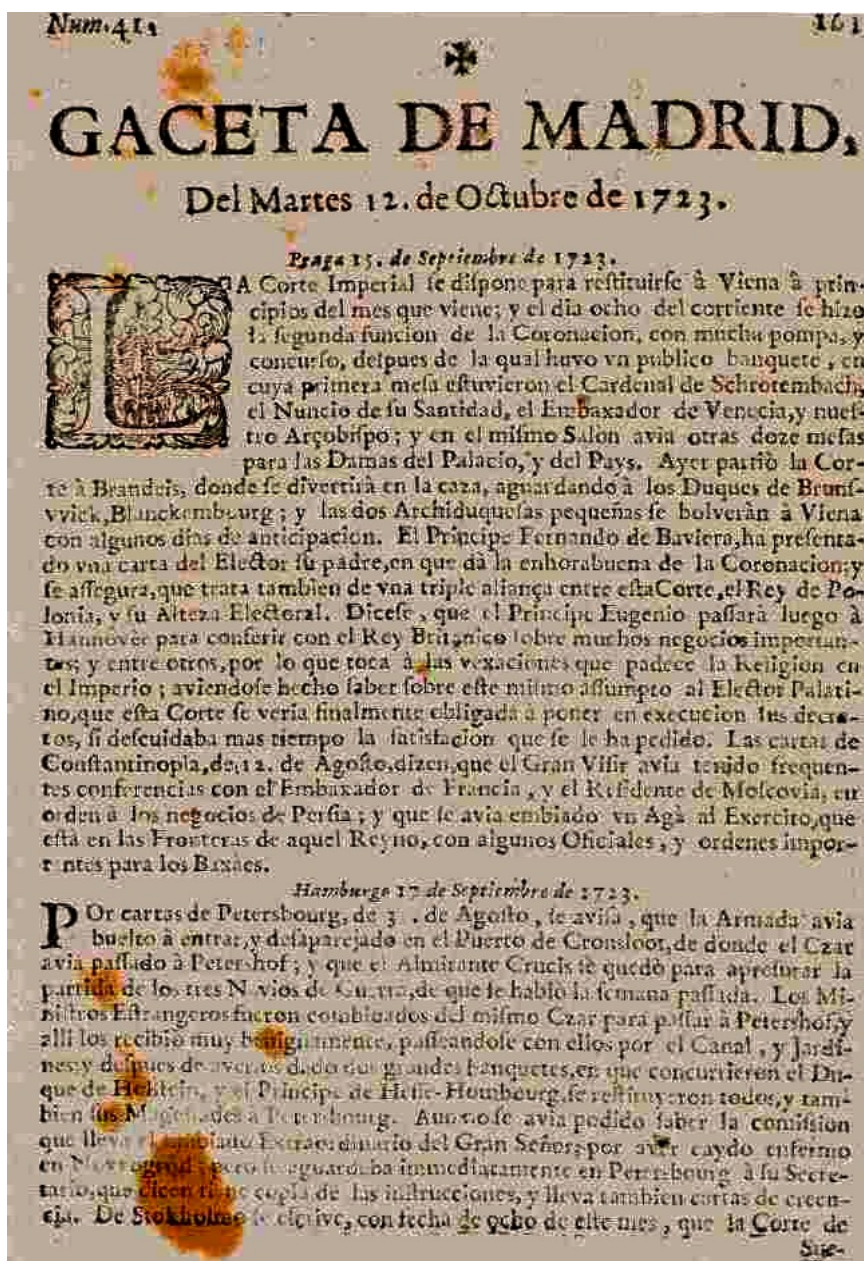 Num. 41.
161
GACETA DE MADRID,
Del Martes 12. de Octubre de 1723.
Praga 15. de Septiembre de 1723.
LA Corte Imperial se dispone para restituirse à Viena à prin-
cipios del mes que viene; y el dia ocho del corriente se hizo
la segunda funcion de la Coronacion, con mucha pompa, y
concurso, despues de la qual huvo vn publico banquete, en
cuya primera mesa estuvieron el Cardenal de Schrotembach,
el Nuncio de su Santidad, el Embaxador de Venecia, y nues-
tro Arçobispo; y en el mismo Salon avia otras doze mesas
para las Damas del Palacio, y del Pays. Ayer partiò la Cor-
te à Brandeis, donde se divertirà en la caza, aguardando à los Duques de Bruns-
vvick, Blanckembourg; y las dos Archiduquesas pequeñas se bolveràn à Viena
con algunos dias de anticipacion. El Principe Fernando de Baviera, ha presenta-
do vna carta del Elector su padre, en que dà la enhorabuena de la Coronacion; y
se assegura, que trata tambien de vna triple aliança entre esta Corte, el Rey de Po-
lonia, y su Alteza Electoral. Dicese, que el Principe Eugenio passarà luego à
Hannover para conferir con el Rey Britanico sobre muchos negocios importan-
tes; y entre otros, por lo que toca à las vexaciones que padece la Religion en
el Imperio; aviendose hecho saber sobre este mismo assumpto al Elector Palati-
no, que esta Corte se veria finalmente obligada à poner en execucion sus decre-
tos, si descuidaba mas tiempo la satisfacion que se le ha pedido. Las cartas de
Constantinopla, de 12. de Agosto, dizen, que el Gran Visir avia tenido frequen-
tes conferencias con el Embaxador de Francia, y el Residente de Moscovia, en
orden à los negocios de Persia; y que se avia embiado vn Agà al Exercito, que
està en las Fronteras de aquel Reyno, con algunos Oficiales, y ordenes impor-
tantes para los Baxaes.
Hamburgo 17 de Septiembre de 1723.
POr cartas de Petersbourg, de 3 . de Agosto, se avisa, que la Armada avia
buelto à entrar, y desaparejado en el Puerto de Cronsloot, de donde el Czar
avia passado à Petershof; y que el Almirante Crucis se quedò para apresurar la
partida de los tres Navios de Guerra, de que se hablò la semana passada. Los Mi-
nistros Estrangeros fueron combidados del mismo Czar para passar à Petershof, y
alli los recibiò muy benignamente, passeandose con ellos por el Canal, y Jardi-
nes; y despues de averlos dado dos grandes banquetes, en que concurrieron el Du-
que de Holstein, y el Principe de Hesse-Hombourg, se restituyeron todos, y tam-
bien sus Magestades à Petersbourg. Aun no se avia podido saber la comission
que lleva el embiado Extraordinario del Gran Señor, por aver caydo enfermo
en Novvogrod; pero se aguardaba immediatamente en Petersbourg à su Secre-
tario, que dicen tiene copia de las instrucciones, y lleva tambien cartas de creen-
cia. De Stokholmo se escrive, con fecha de ocho de este mes, que la Corte de
Sue-